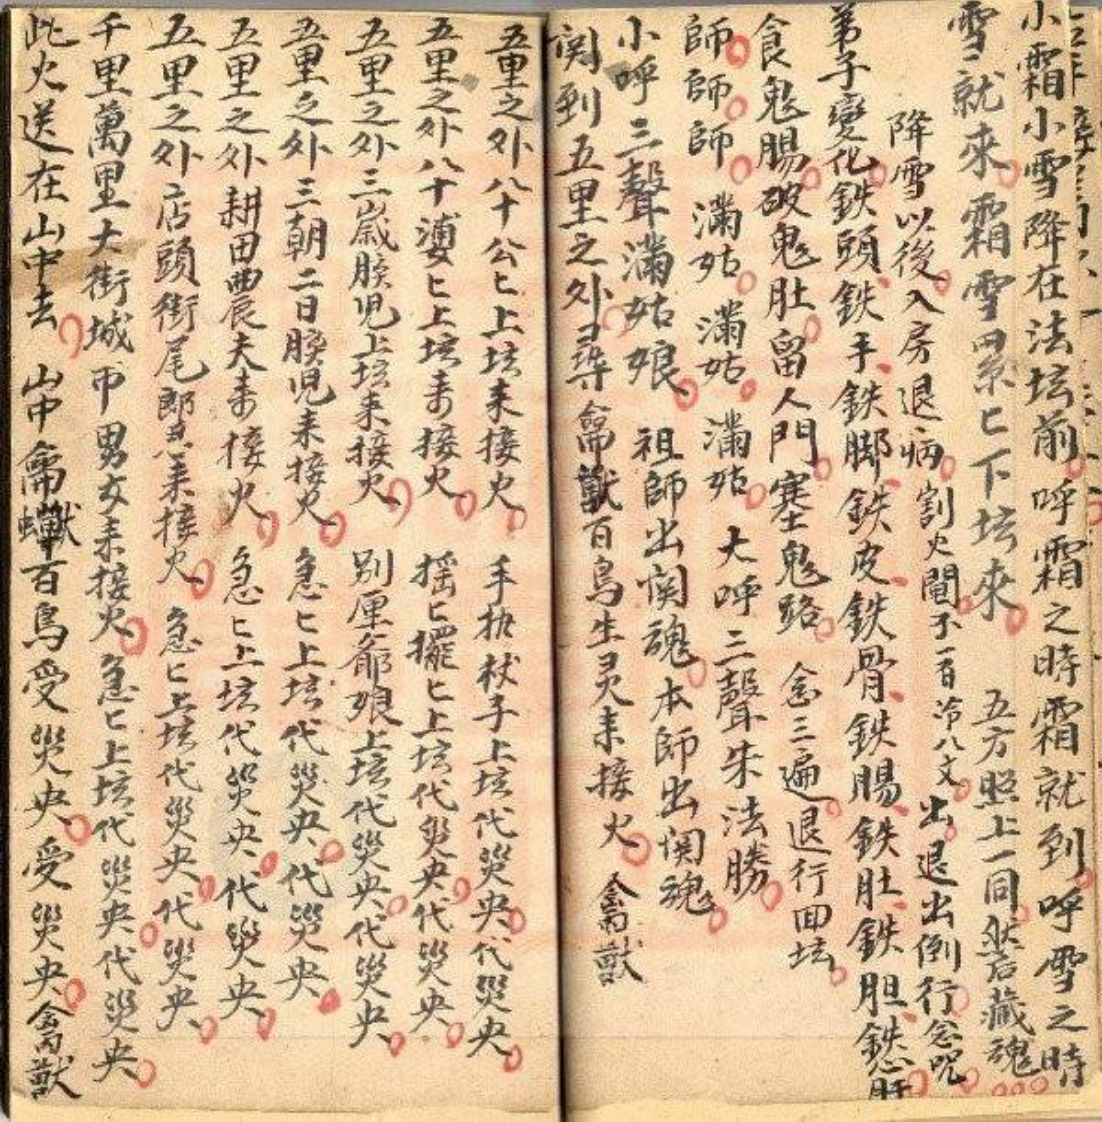 小霜小雪降在法坛前呼霜之時霜就到呼雪之時
雪就來霜雪匕下坛來 五方照上一同然后藏魂
降雪以後入房退病 割火閻不一百冷八文 出退出倒行念咒
弟子變化鉄頭鉄手鉄脚鉄皮鉄骨鉄腸鉄肚鉄胆鉄肝
食鬼腸破鬼肚留人門塞鬼路 念三遍退行回坛
師師師 滿姑滿姑滿姑 大呼三聲朱法勝
小呼三聲滿姑娘 祖師出関魂本師出関魂
関到五里之外尋禽獸百鳥生灵耒接火 禽獸
五里之外八十公匕上坛耒接火 手执杖子上坛代災央代災央
五里之外八十婆匕上坛耒接火 摇匕擺匕上坛代災央代災央
五里之外三歲孩児上坛耒接火 别厘爺娘上坛代災央代災央
五里之外三朝二日孩児耒接火 急匕上坛代災央代災央
五里之外耕田農夫耒接火 急匕上坛代災央代災央
五里之外店頭街尾郎耒接火 急匕上坛代災央代災央
千里萬里大街城市男女耒接火急匕上坛代災央代災央
此火送在山中去 山中禽獸百鳥受災央受災央禽獸